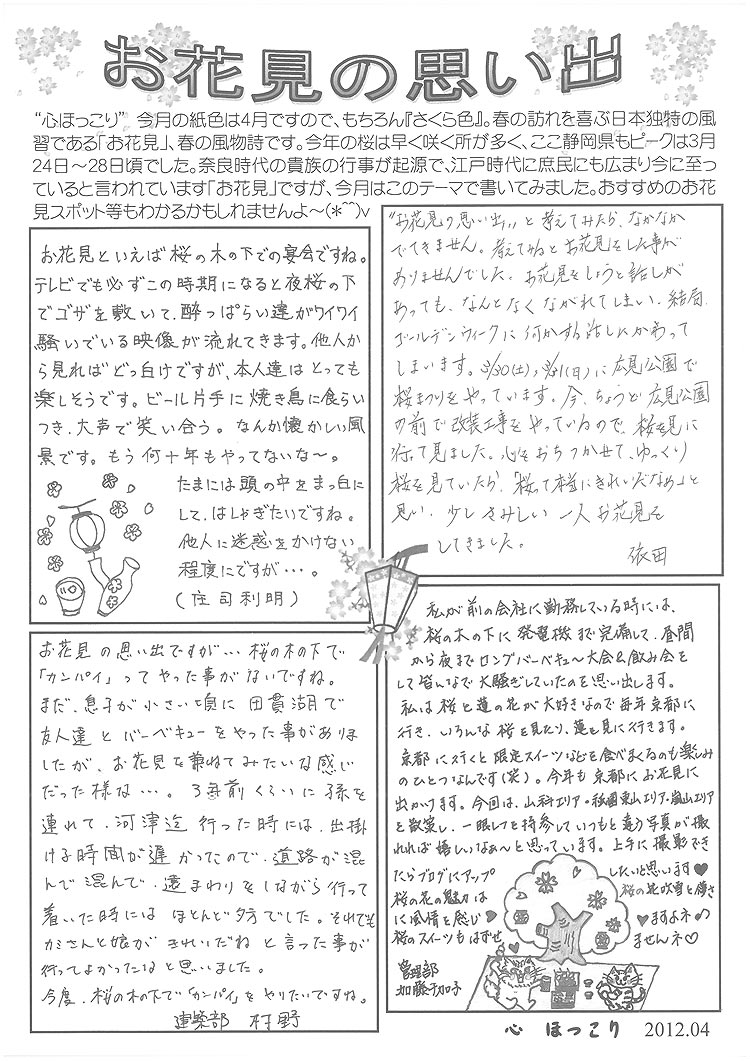 お花見の思い出
“心ほっこり” 今月の紙色は4月ですので、もちろん『さくら色』。春の訪れを喜ぶ日本独特の風
習である「お花見」、春の風物詩です。今年の桜は早く咲く所が多く、ここ静岡県もピークは3月
24日～28日頃でした。奈良時代の貴族の行事が起源で、江戸時代に庶民にも広まり今に至っ
ていると言われています「お花見」ですが、今月はこのテーマで書いてみました。おすすめのお花
見スポット等もわかるかもしれませんよ～(*^^)v
お花見といえば桜の木の下での宴会ですね。
テレビでも必ずこの時期になると夜桜の下
でゴザを敷いて、酔っぱらい達がワイワイ
騒いでいる映像が流れてきます。他人か
ら見ればどっ白けですが、本人達はとっても
楽しそうです。ビール片手に焼き鳥に食らい
つき、大声で笑い合う。なんか懐かしい風
景です。もう何十年もやってないな～。
たまには頭の中をまっ白に
して、はしゃぎたいですね。
他人に迷惑をかけない
程度にですが・・・。
(庄司利明)
“お花見の思い出,,と考えてみたら、なかなか
でてきません。考えてみるとお花見をした事が
ありませんでした。お花見をしようと話しが
あっても、なんとなくながれてしまい、結局
ゴールデンウィークに何かする話しにかわって
しまいます。3/30(土)、3/31(日)に広見公園で
桜まつりをやっています。今、ちょうど広見公園
の前で改装工事をやっているので、桜を見に
行って見ました。心をおちつかせて、ゆっくり
桜を見ていたら、「桜って本当にきれいだなぁ」と
思い、少しさみしい一人お花見を
してきました。
依田
お花見の思い出ですが・・・桜の木の下で
「カンパイ」ってやった事がないですね。
まだ、息子が小さい頃に田貫湖で
友人達とバーベキューをやった事がありま
したが、お花見を兼ねてみたいな感じ
だった様な・・・。3年前くらいに孫を
連れて、河津迄行った時には、出掛
ける時間が遅かったので、道路が混
んで混んで、遠まわりをしながら行って
着いた時にはほとんど夕方でした。それでも
カミさんと娘がきれいだねと言った事が
行ってよかったなと思いました。
今度、桜の木の下で「カンパイ」をやりたいですね。
建築部 村野
私が前の会社に勤務している時には、
桜の木の下に発電機まで完備して、昼間
から夜までロングバーベキュー大会&飲み会を
して皆んなで大騒ぎしていたのを思い出します。
私は桜と蓮の花が大好きなので毎年京都に
行き、いろんな桜を見たり、蓮を見に行きます。
京都に行くと限定スイーツなどを食べまくるのも楽しみ
のひとつなんです(笑)。今年も京都にお花見に
出かけます。今回は、山科エリア・祇園東山エリア・嵐山エリア
を散策し、一眼レフを持参していつもと違う写真が撮
れれば嬉しいなぁ～と思っています。上手に撮影でき
たらブログにアップしたいと思います♥
桜の花の魅力は桜の花吹雪と儚さ
に風情を感じ♥ますよネ♪
桜のスイーツもはずせませんネ♡
管理部
加藤千加子
心 ほっこり 2012.04